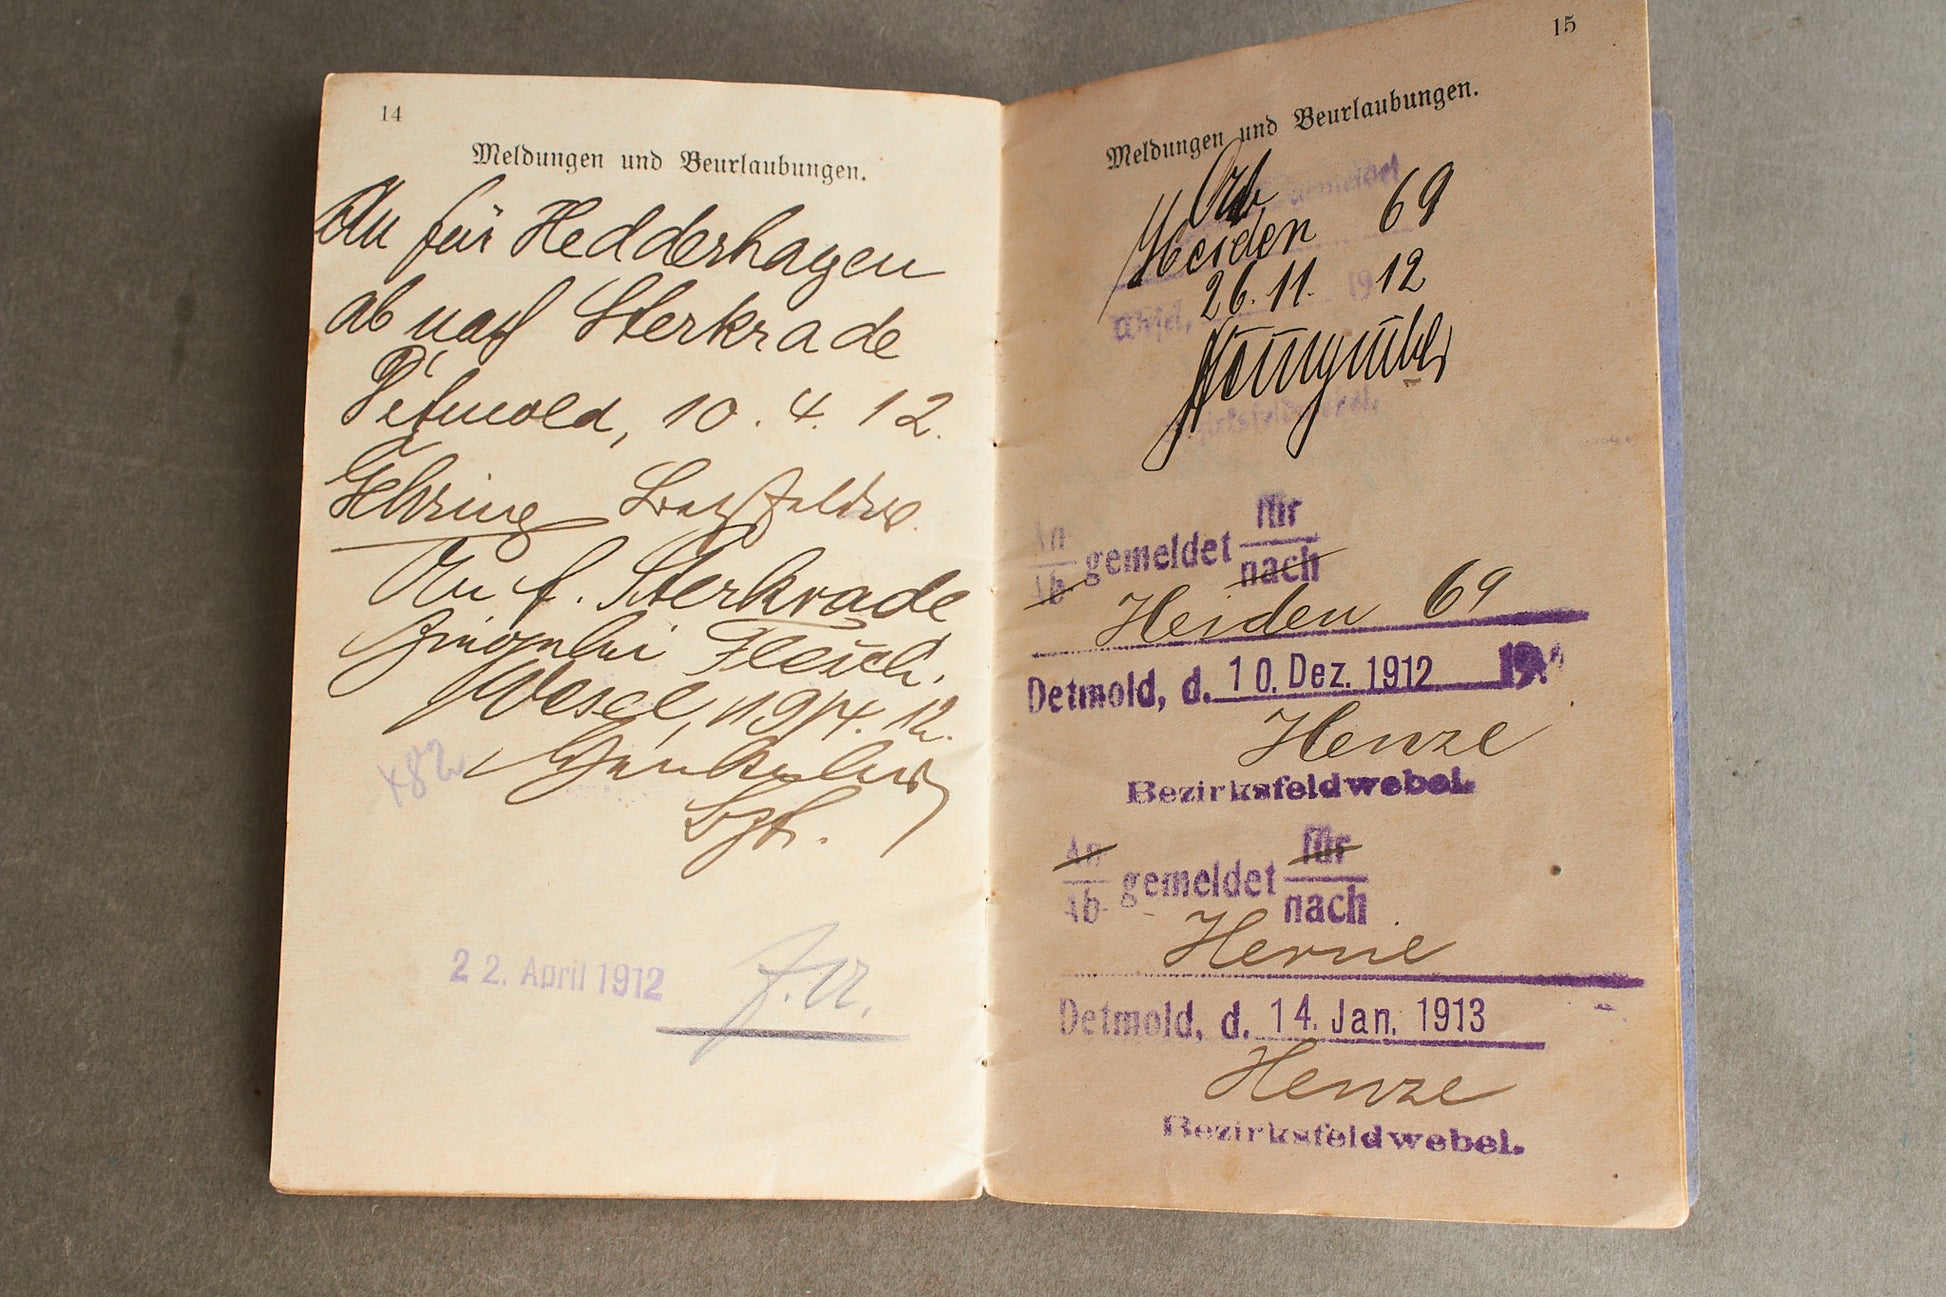 14
Meldungen und Beurlaubungen.
An für Hedderhagen
ab nach Sterkrade
Detmold, 10. 4. 12.
Gehring
An f. Sterkrade
Wesel, 19/4. 12.
22. April 1912
15
Meldungen und Beurlaubungen.
Heiden 69
26. 11. 12
An für
gemeldet
Ab nach
Heiden 69
Detmold, d. 10. Dez. 1912 191
Henze
Bezirksfeldwebel.
An für
gemeldet
Ab nach
Herne
Detmold, d. 14. Jan. 1913
Henze
Bezirksfeldwebel.